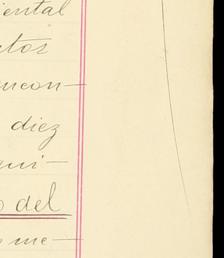 iental
ntos
ncon-
diez
qui-
o del
me-